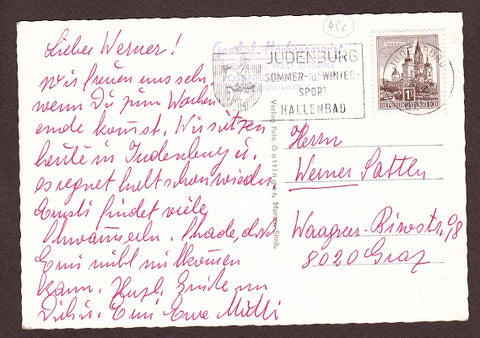 Lieber Werner!
Wir freuen uns sehr
wenn Du zum Wochen-
ende kommst. Wir sitzen
heute in Judenburg u.
es regnet halt schon wieder
findet viele
Schwammerln. Schade, daß
nicht mitkommen
kann. Herzl. Grüße von
Eva Mutti
482
JUDENBURG
SOMMER- U. WINTER-
SPORT
HALLENBAD
JUDENBURG
REPUBLIK ÖSTERREICH
Verlag Foto Gottlinger, Mürzer Stmk.
Herrn
Werner Sattler
Waagner-Birostr. 98
8020 Graz